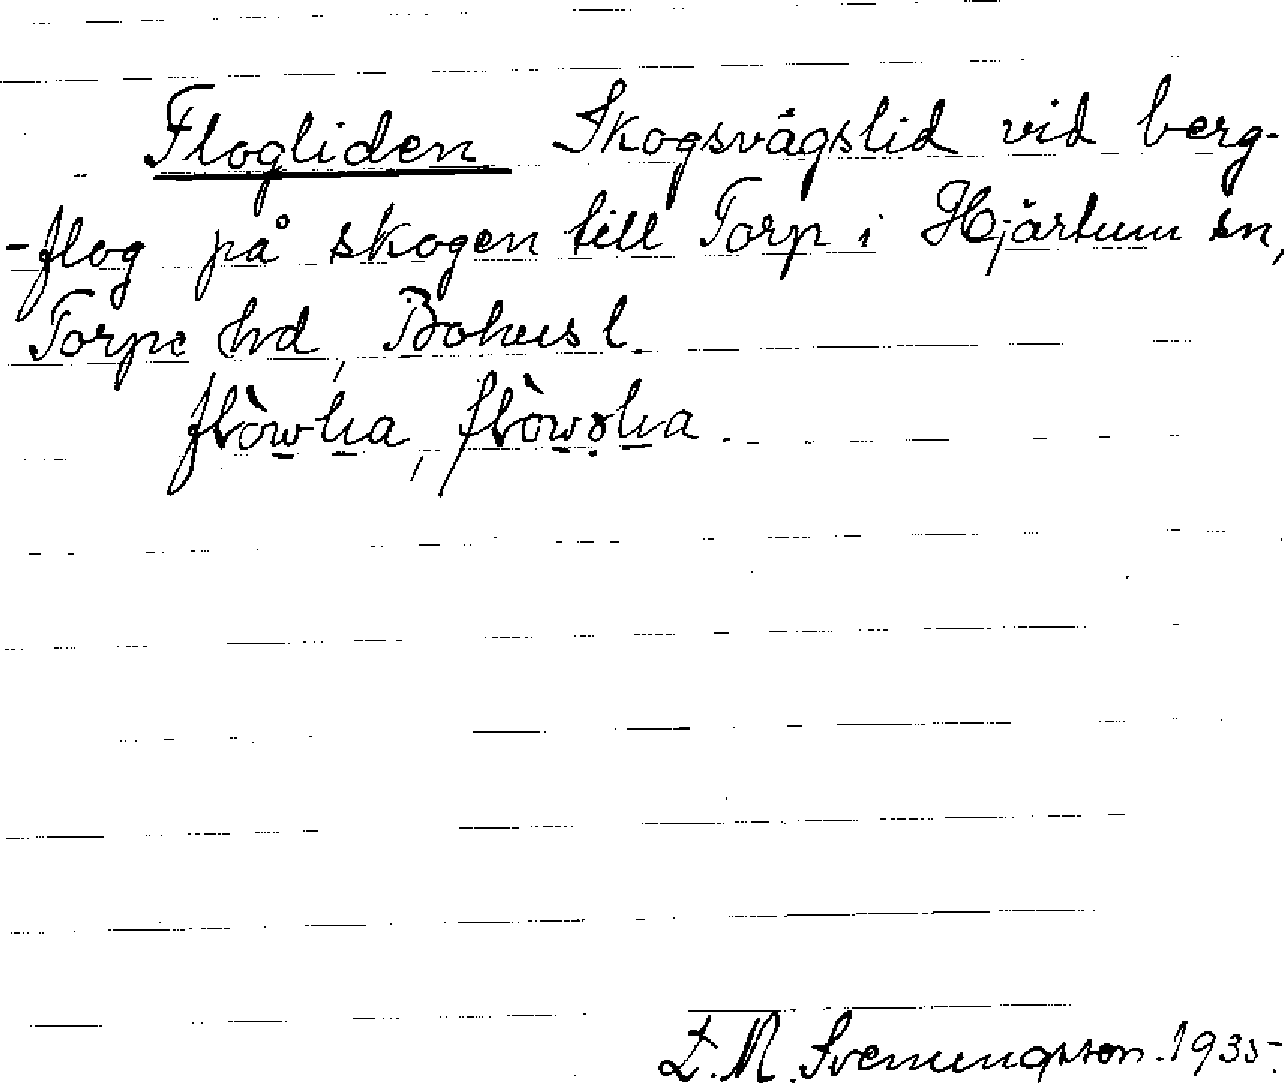 Flogliden Skogsvägslid vid berg-
-flog på skogen till Torp i Hjärtum sn,
Torpe hd, Bohusl.
D. M. Svenungsson. 1935.